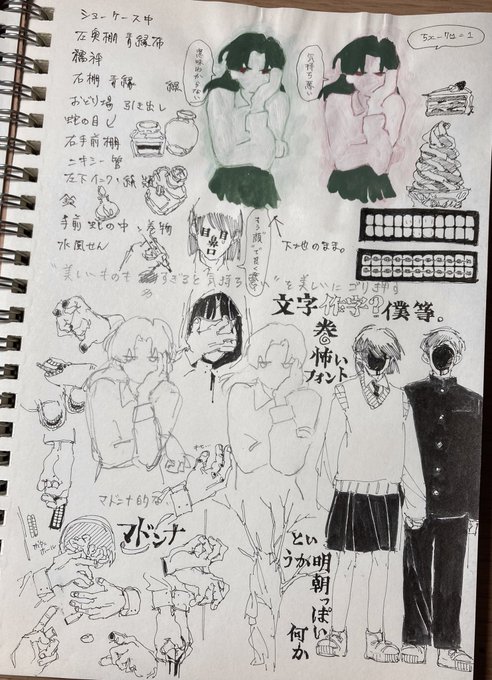 ショーケース中
左奥棚 青緑布
右棚 青緑
おどり場 引き出し
蛇の目し
右手前棚
ニキシー管
手前 蛇の中 巻物
水風せん
意味わからない
気持ち悪い
5x-7y=1
目 目
鼻
口
もう顔
下地のまま。
"美しいものも すぎると気持ち悪い"を美しいにゴリ押す
文字 作字? 僕等。
巻
怖い
フォント
マドンナ的な
マドンナ
という
うか
明朝っぽい
何か